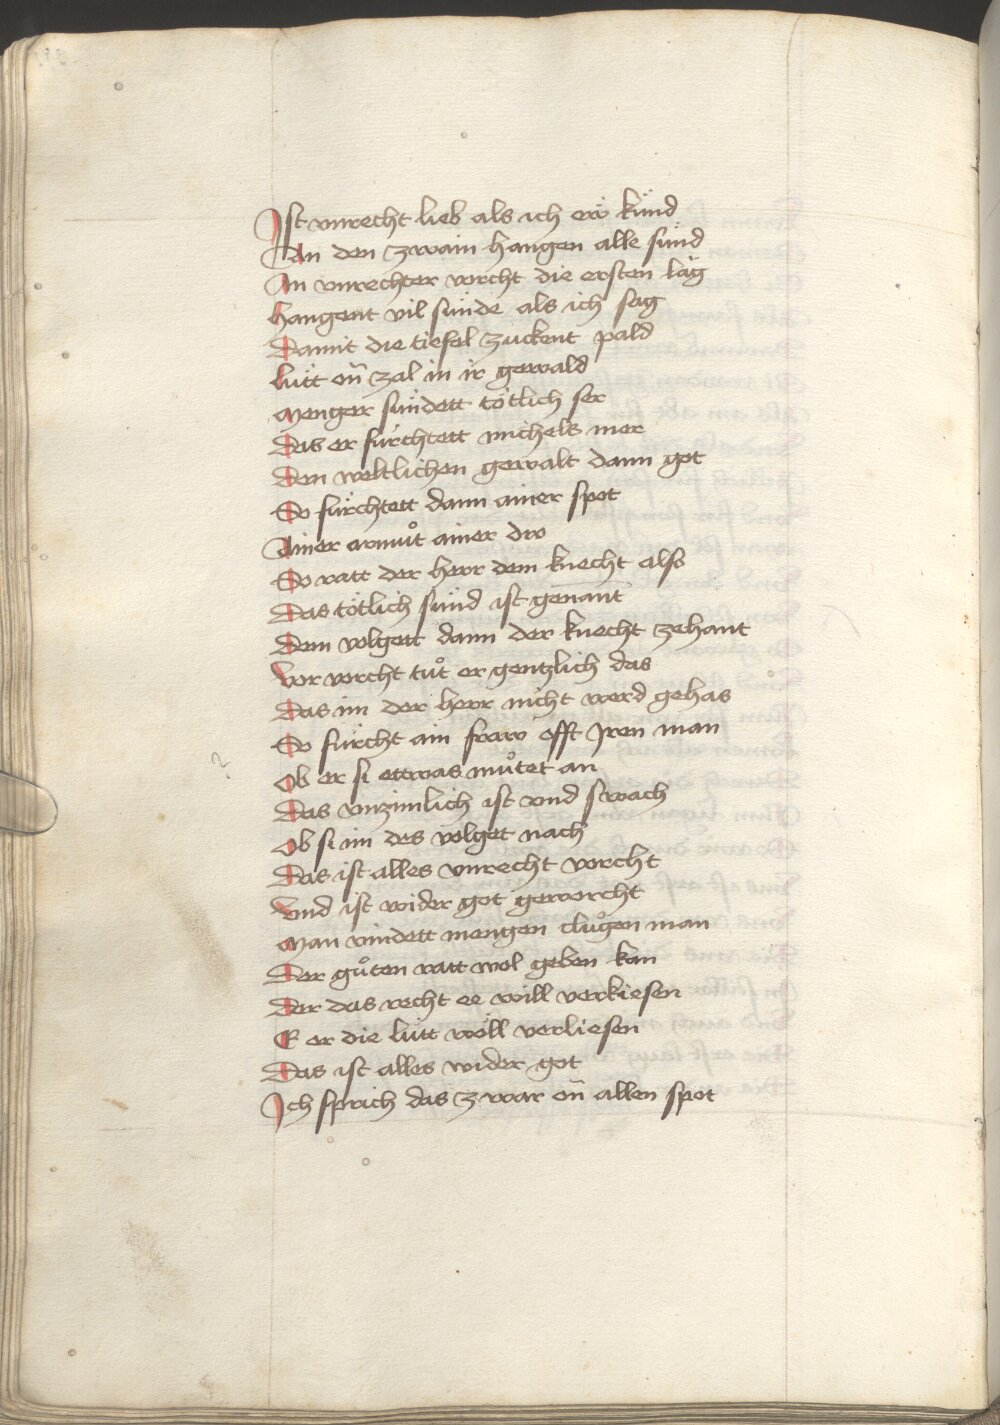 Ist vnrecht lieb als ich ew künd
An den zwain hangen alle sünd
An vnrechter vorcht die ersten läg
Hangent vil sünde als ich sag
Damit die tiefel zuckent pald
Lütt on̄ zal in ir gewald
Menger sündett tötlich ser
Das er fürchtett michels mer
Den weltlichen gewalt dann got
So fürchtett dann ainer spot
Ainer armuͦt ainer dro
So ratt der herr dem knecht also
Das tötlich sünd ist genant
Dem volgett dann der knecht zehant
Vor vorcht tuͦt er gentzlich das
Das im der herr nicht werd gehas
So fürcht ain fraw offt Jren man
Ob er si ettwas muͦtet an
Das vnzimlich ist vnd swach
Ob si im des volget nach
Das ist alles vnrecht vorcht
Vnd ist wider got geworcht
Man vindett mengen cluͦgen man
Der guͦten ratt wol geben kan
Der das recht ee will verkiesen
E er die lütt wöll verliesen
Das ist alles wider got
Ich sprich das zwar on̄ allen spot